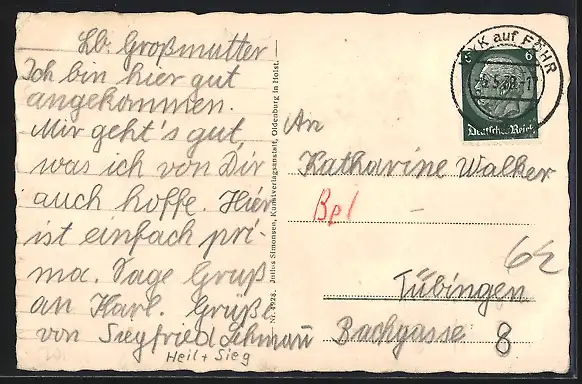 Lb. Großmutter
Ich bin hier gut
angekommen.
Mir geht's gut,
was ich von Dir
auch hoffe. Hier
ist einfach pri-
ma. Sage Gruß
an Karl. Grüße
von Siegfried Lehmann
Heil + Sieg
Nr. 4928. Julius Simonsen, Kunstverlagsanstalt, Oldenburg in Holst.
WYK auf FÖHR
6 6
Deutsches Reich
An
Katharine Walker
Bpl
62
Tübingen
Bachgasse 8